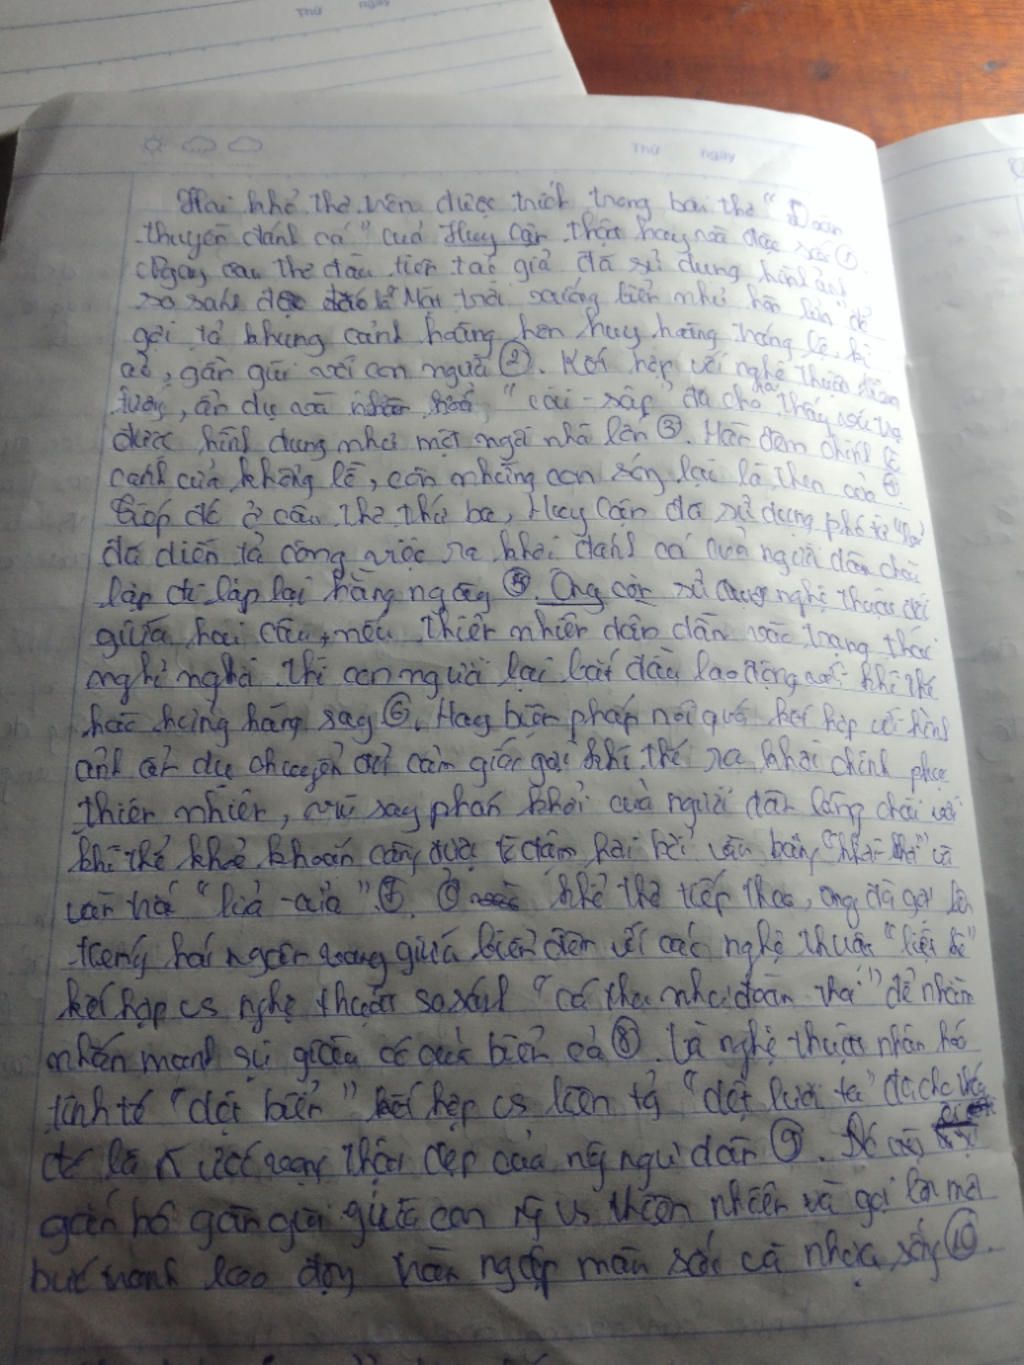 Thứ ngày
Thứ ngày
Hai khổ thơ trên được trích trong bài thơ "Đoàn
thuyền đánh cá" của Huy Cận thật hay và đặc sắc ①.
Ngay câu thơ đầu tiên tác giả đã sử dụng hình ảnh
so sánh "Mặt trời xuống biển như hòn lửa" để
gợi tả khung cảnh hoàng hôn huy hoàng tráng lệ, kì
ảo, gần gũi với con người ②. Kết hợp với nghệ thuật liên
tưởng, ẩn dụ và nhân hoá "cài - sập" đã cho thấy vũ trụ
được hình dung như một ngôi nhà lớn ③. Màn đêm chính là
cánh cửa khổng lồ, còn những con sóng lại là then cửa ④.
Tiếp đó ở câu thơ thứ ba, Huy Cận đã sử dụng phó từ "lại"
đã diễn tả công việc ra khơi đánh cá của người dân chài
lặp đi lặp lại hằng ngày ⑤. Ông còn sử dụng nghệ thuật đối
giữa hai câu, nếu thiên nhiên dần dần vào trạng thái
nghỉ ngơi thì con người lại bắt đầu lao động với khí thế
hào hứng hăng say ⑥. Hay biện pháp nói quá kết hợp với hình
ảnh ẩn dụ chuyển đổi cảm giác gợi khí thế ra khơi chinh phục
thiên nhiên, sự say phấn khởi của người dân làng chài với
khí thế khoẻ khoắn cũng được tô đậm bởi vần bằng "khơi - khơi" và
vần trắc ⑦. Ở khổ thơ tiếp theo, ông đã gợi lên
giữa biển đêm với các nghệ thuật "liệt kê"
kết hợp vs nghệ thuật so sánh "cá thu như đoàn thoi" để nhằm
nhấn mạnh sự giàu có của biển cả ⑧. Là nghệ thuật nhân hoá
tinh tế "dệt biển" kết hợp vs liên tg "dệt lưới ta" đã cho thấy
đc là ước vọng thật đẹp của ng ngư dân ⑨. Đó
gắn bó gần gũi giữa con ng vs thiên nhiên và gợi lên một
bức tranh lao động tràn ngập màu sắc và nhựa sống ⑩.